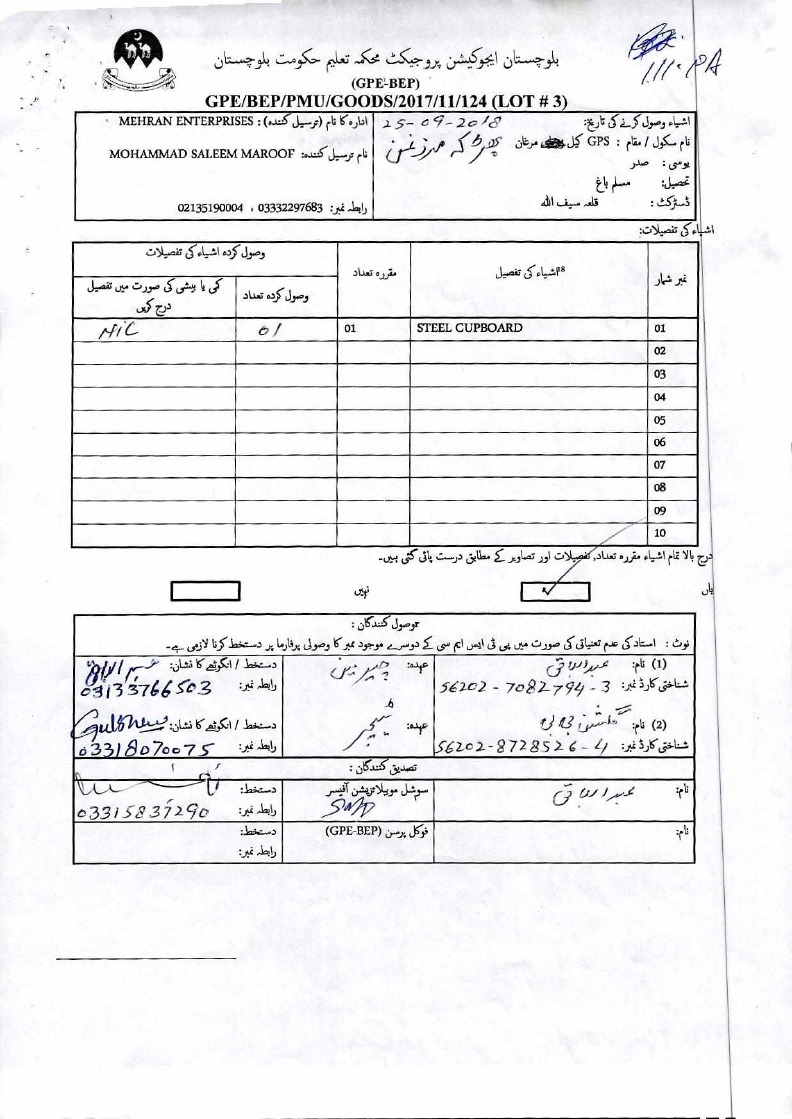 بلوچستان ایجوکیشن پروجیکٹ محکمہ تعلیم حکومت بلوچستان
111-PA
(GPE-BEP)
GPE/BEP/PMU/GOODS/2017/11/124 (LOT # 3)
اشیاء وصول کرنے کی تاریخ: 25-09-2018
نام سکول / مقام : GPS کیل مرغان
یوسی: صدر
تحصیل: مسلم باغ
ڈسٹرکٹ: قلعہ سیف اللہ
ادارہ کا نام (ترسیل کنندہ): MEHRAN ENTERPRISES
نام ترسیل کنندہ: MOHAMMAD SALEEM MAROOF
رابطہ نمبر: 03332297683 ، 02135190004
اشیاء کی تفصیلات:
نمبر شمار
اشیاء کی تفصیل
مقررہ تعداد
وصول کردہ اشیاء کی تفصیلات
وصول کردہ تعداد
کمی یا بیشی کی صورت میں تفصیل درج کریں
01 STEEL CUPBOARD 01 01 NIC
02
03
04
05
06
07
08
09
10
درج بالا تمام اشیاء مقررہ تعداد، تفصیلات اور تصاویر کے مطابق درست پائی گئی ہیں۔
ہاں ✓ نہیں
وصول کنندگان :
نوٹ : استاد کی عدم تعنیاتی کی صورت میں پی ٹی ایس ایم سی کے دوسرے موجود ممبر کا وصولی پرفارما پر دستخط کرنا لازمی ہے۔
(1) نام: عبدالباقی عہدہ: چیرمین دستخط / انگوٹھے کا نشان:
شناختی کارڈ نمبر: 56202-7082794-3 رابطہ نمبر: 03133766503
(2) نام: عہدہ: ٹیچر دستخط / انگوٹھے کا نشان:
شناختی کارڈ نمبر: 56202-8728526-4 رابطہ نمبر: 03318070075
تصدیق کنندگان :
نام: عبدالباقی سوشل موبیلائزیشن آفیسر دستخط:
رابطہ نمبر: 03315837290
نام: فوکل پرسن (GPE-BEP) دستخط:
رابطہ نمبر: